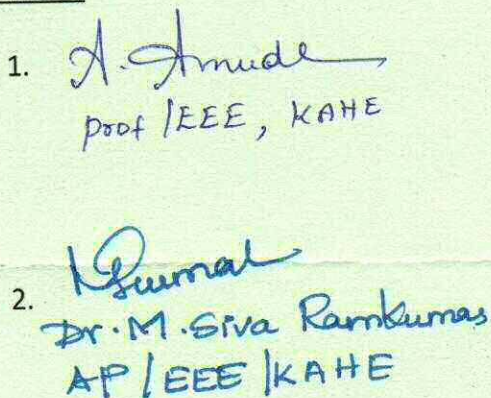 1. A. Amude
Prof / EEE, KAHE
2.
Dr. M. Siva Ramkumar
AP / EEE / KAHE